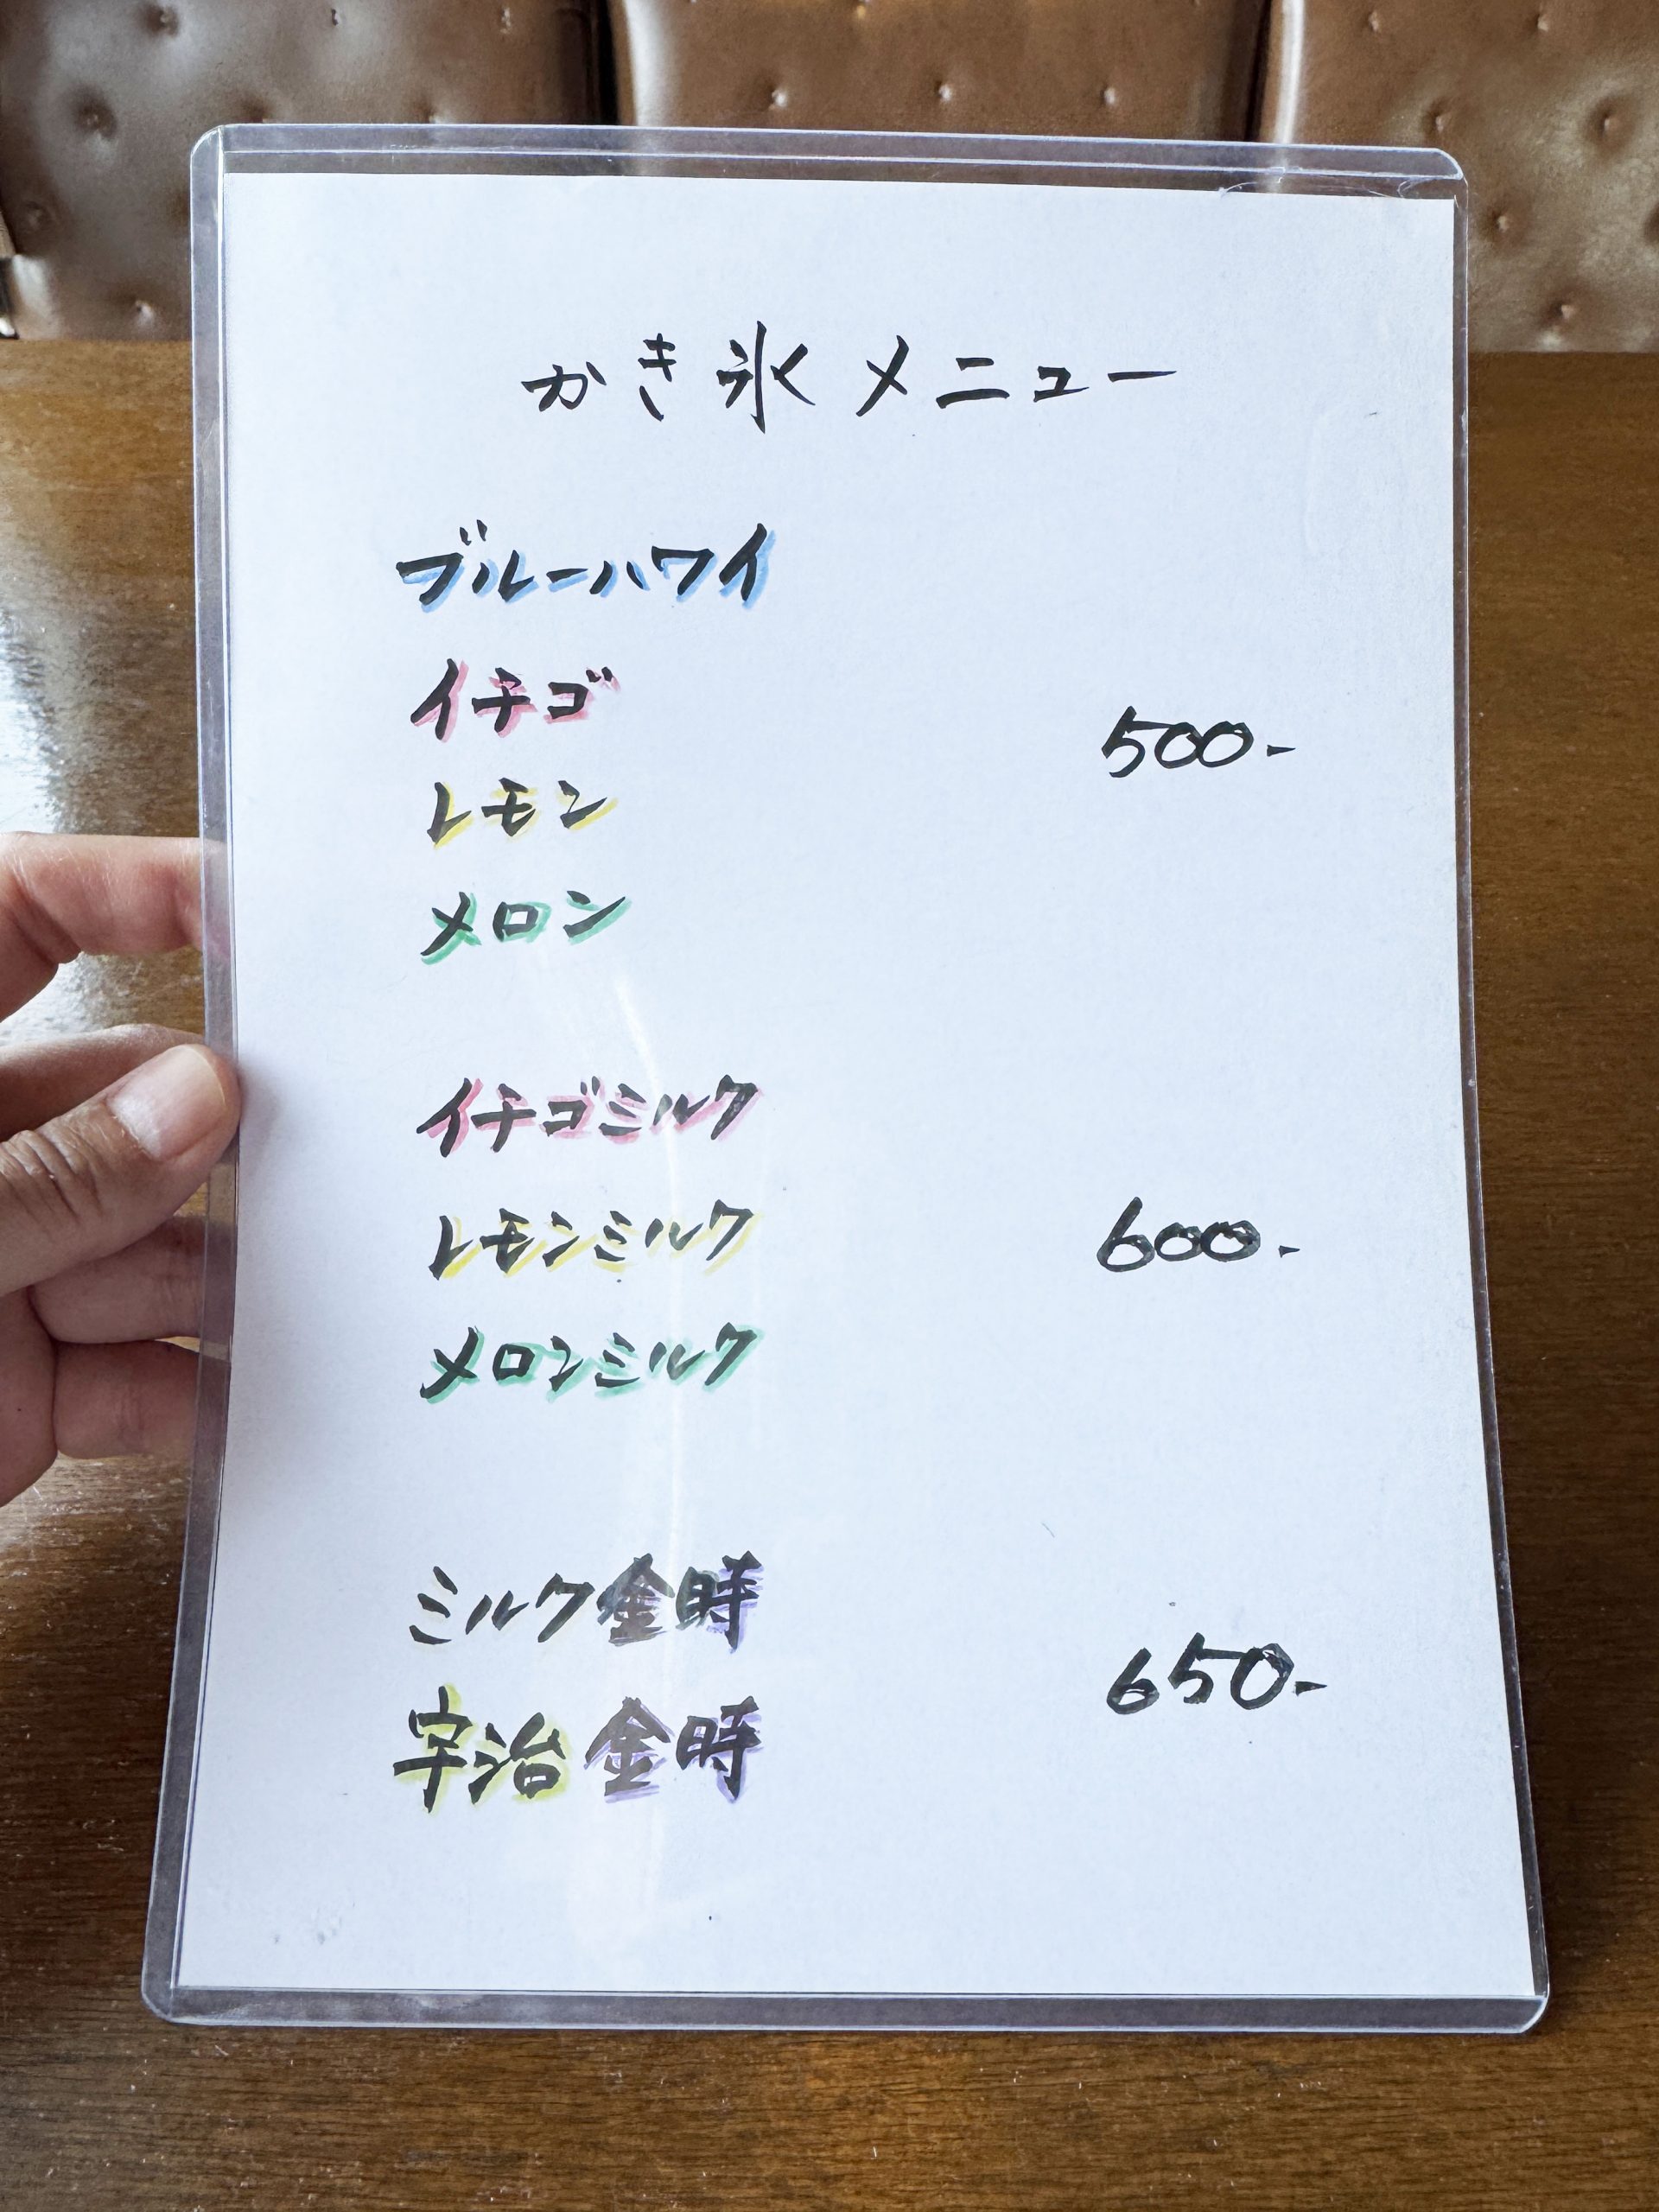 かき氷メニュー
ブルーハワイ
イチゴ
500-
レモン
メロン
イチゴミルク
レモンミルク
600-
メロンミルク
ミルク金時
650-
宇治金時